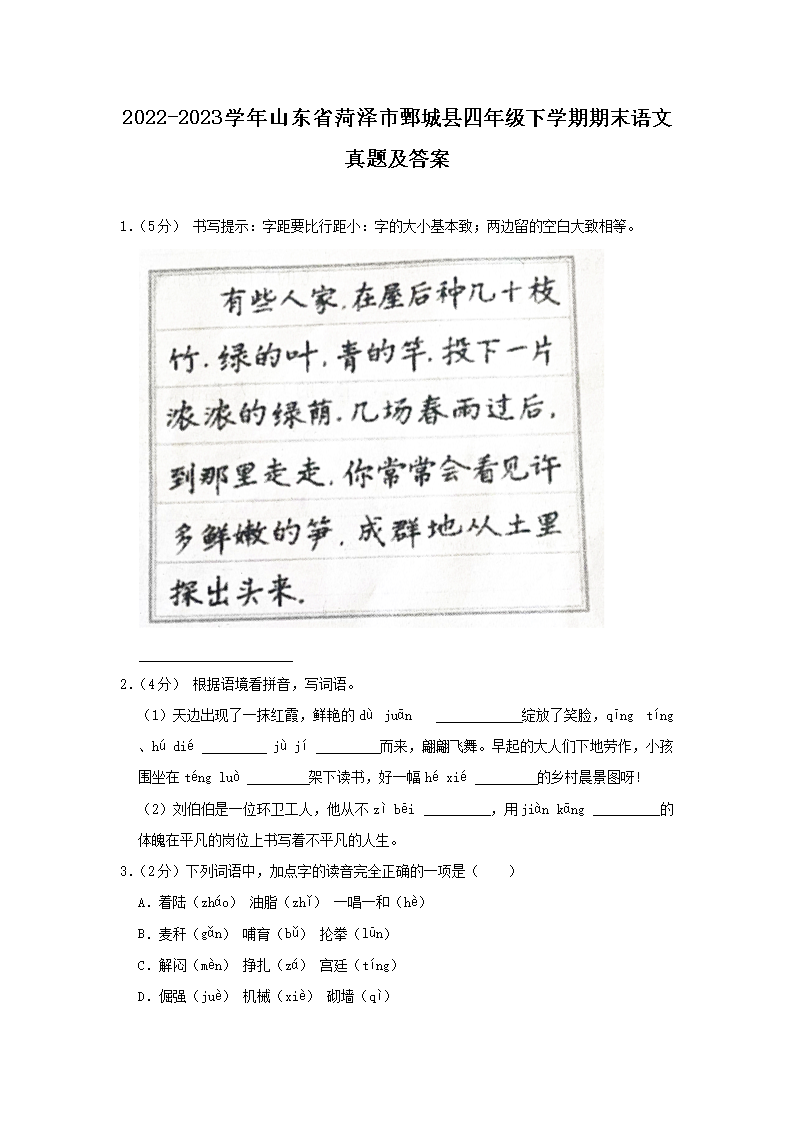 2022-2023学年山东省菏泽市鄄城县四年级下学期期末语文
真题及答案
1.（5分） 书写提示：字距要比行距小：字的大小基本致；两边留的空白大致相等。
有些人家，在屋后种几十枝
竹．绿的叶，青的竿．投下一片
浓浓的绿荫．几场春雨过后，
到那里走走，你常常会看见许
多鲜嫩的笋，成群地从土里
探出头来．
2.（4分） 根据语境看拼音，写词语。
（1）天边出现了一抹红霞，鲜艳的dù juān ____________绽放了笑脸，qīng tíng
、hú dié _________ jù jí _________而来，翩翩飞舞。早起的大人们下地劳作，小孩
围坐在téng luò _________架下读书，好一幅hé xié _________的乡村晨景图呀!
（2）刘伯伯是一位环卫工人，他从不zì bēi _________，用jiàn kāng _________的
体魄在平凡的岗位上书写着不平凡的人生。
3.（2分）下列词语中，加点字的读音完全正确的一项是（　　）
A．着陆（zháo） 油脂（zhǐ） 一唱一和（hè）
B．麦秆（gǎn） 哺育（bǔ） 抡拳（lūn）
C．解闷（mèn） 挣扎（zá） 宫廷（tíng）
D．倔强（juè） 机械（xiè） 砌墙（qì）